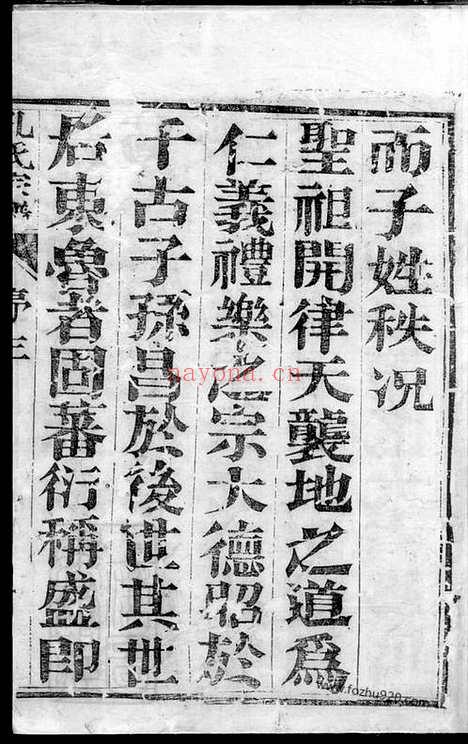 而子姓秩况
聖祖開律天襲地之道為
仁義禮樂之宗大德昭於
千古子孫昌於後世其世
居東魯者固蕃衍稱盛即
孔氏宗譜
序三
nayona.cn
www.fozhu920.com